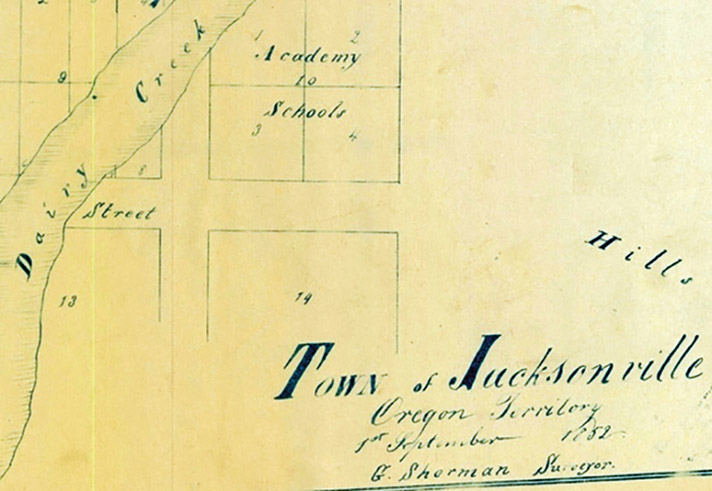 1
2
Academy
10
Schools
3
4
9
Dairy Creek
8
Street
Hills
13
14
Town of Jacksonville
Oregon Territory
1st September 1852.
G. Sherman Surveyor.